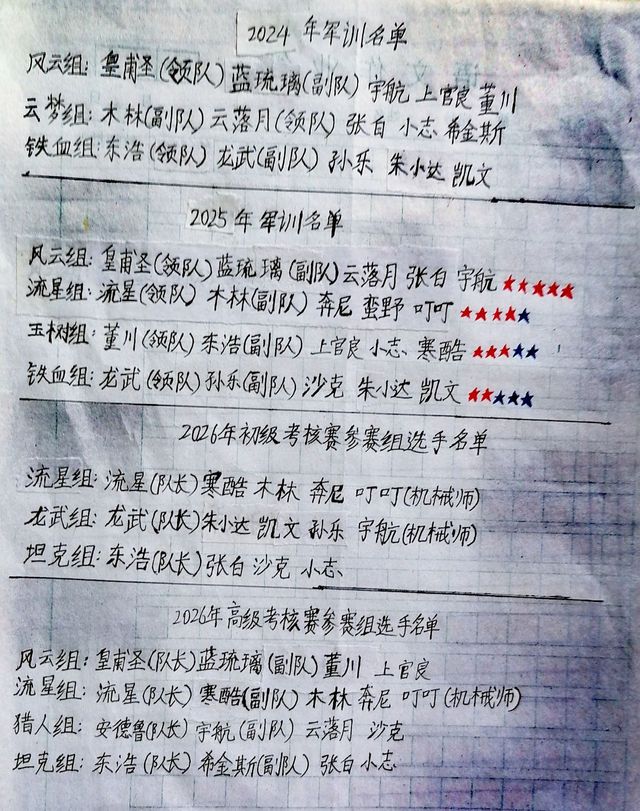 2024年军训名单
风云组：皇甫圣(领队)蓝琉璃(副队)宇航 上官良 董川
云梦组：木林(副队)云落月(领队)张白 小志 希金斯
铁血组：东浩(领队)龙武(副队)孙乐 朱小达 凯文
2025年军训名单
风云组：皇甫圣(领队)蓝琉璃(副队)云落月 张白 宇航★★★★★
流星组：流星(领队)木林(副队)奔尼 蛮野 叮叮★★★★★
玉树组：董川(领队)东浩(副队)上官良 小志 寒酷★★★★★
铁血组：龙武(领队)孙乐(副队)沙克 朱小达 凯文★★★★★
2026年初级考核赛参赛组选手名单
流星组：流星(队长)寒酷 木林 奔尼 叮叮(机械师)
龙武组：龙武(队长)朱小达 凯文 孙乐 宇航(机械师)
坦克组：东浩(队长)张白 沙克 小志
2026年高级考核赛参赛组选手名单
风云组：皇甫圣(队长)蓝琉璃(副队)董川 上官良
流星组：流星(队长)寒酷(副队)木林 奔尼 叮叮(机械师)
猎人组：安德鲁(队长)宇航(副队)云落月 沙克
坦克组：东浩(队长)希金斯(副队)张白 小志